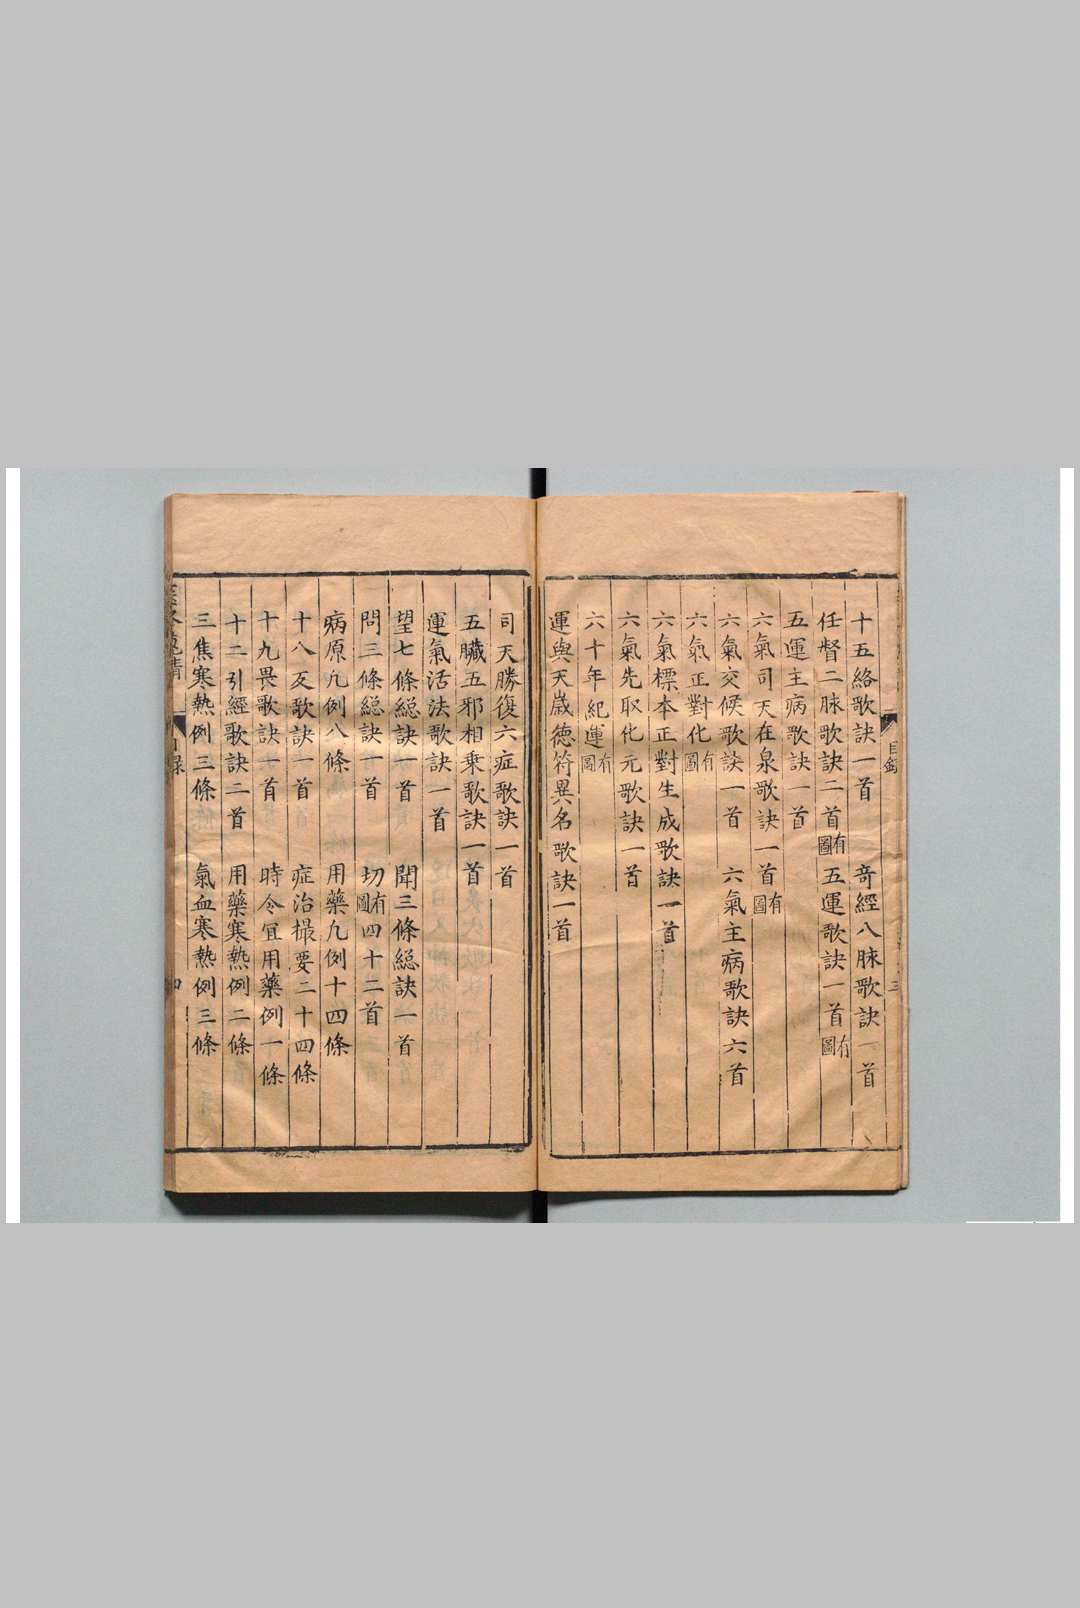 十五絡歌訣一首 竒經八脉歌訣一首
任督二脉歌訣二首有圖 五運歌訣一首有圖
五運主病歌訣一首
六氣司天在泉歌訣一首有圖
六氣交候歌訣一首 六氣主病歌訣六首
六氣正對化有圖
六氣標本正對生成歌訣一首
六氣先取化元歌訣一首
六十年紀運有圖
運與天歲德符異名歌訣一首
目錄
三
司天勝復六症歌訣一首
五臟五邪相乗歌訣一首
運氣活法歌訣一首
望七條総訣一首 聞三條総訣一首
問三條総訣一首 切有圖四十二首
病原凢例八條 用藥凢例十四條
十八反歌訣一首 症治撮要二十四條
十九畏歌訣一首 時令宜用藥例一條
十二引經歌訣二首 用藥寒熱例二條
三焦寒熱例三條 氣血寒熱例三條
目錄
四